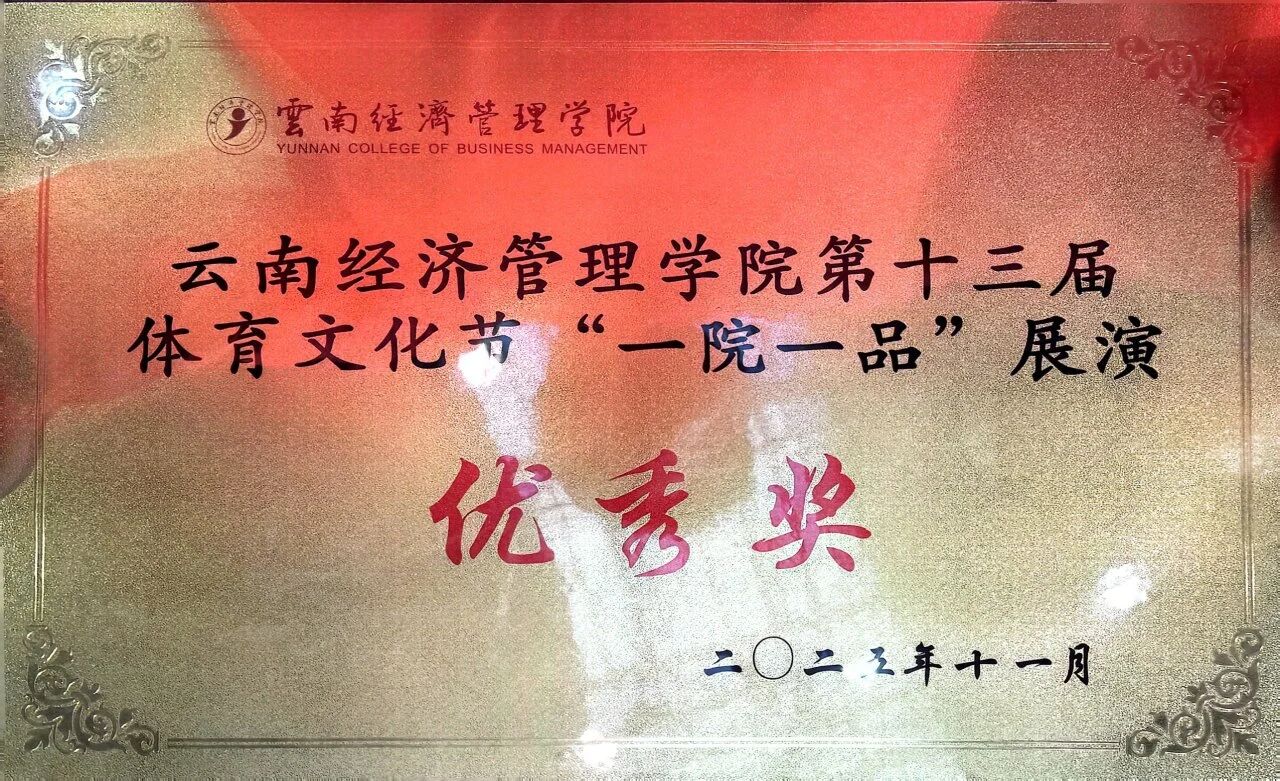 雲南经濟管理学院
YUNNAN COLLEGE OF BUSINESS MANAGEMENT
云南经济管理学院第十三届
体育文化节“一院一品”展演
优秀奖
二〇二五年十一月